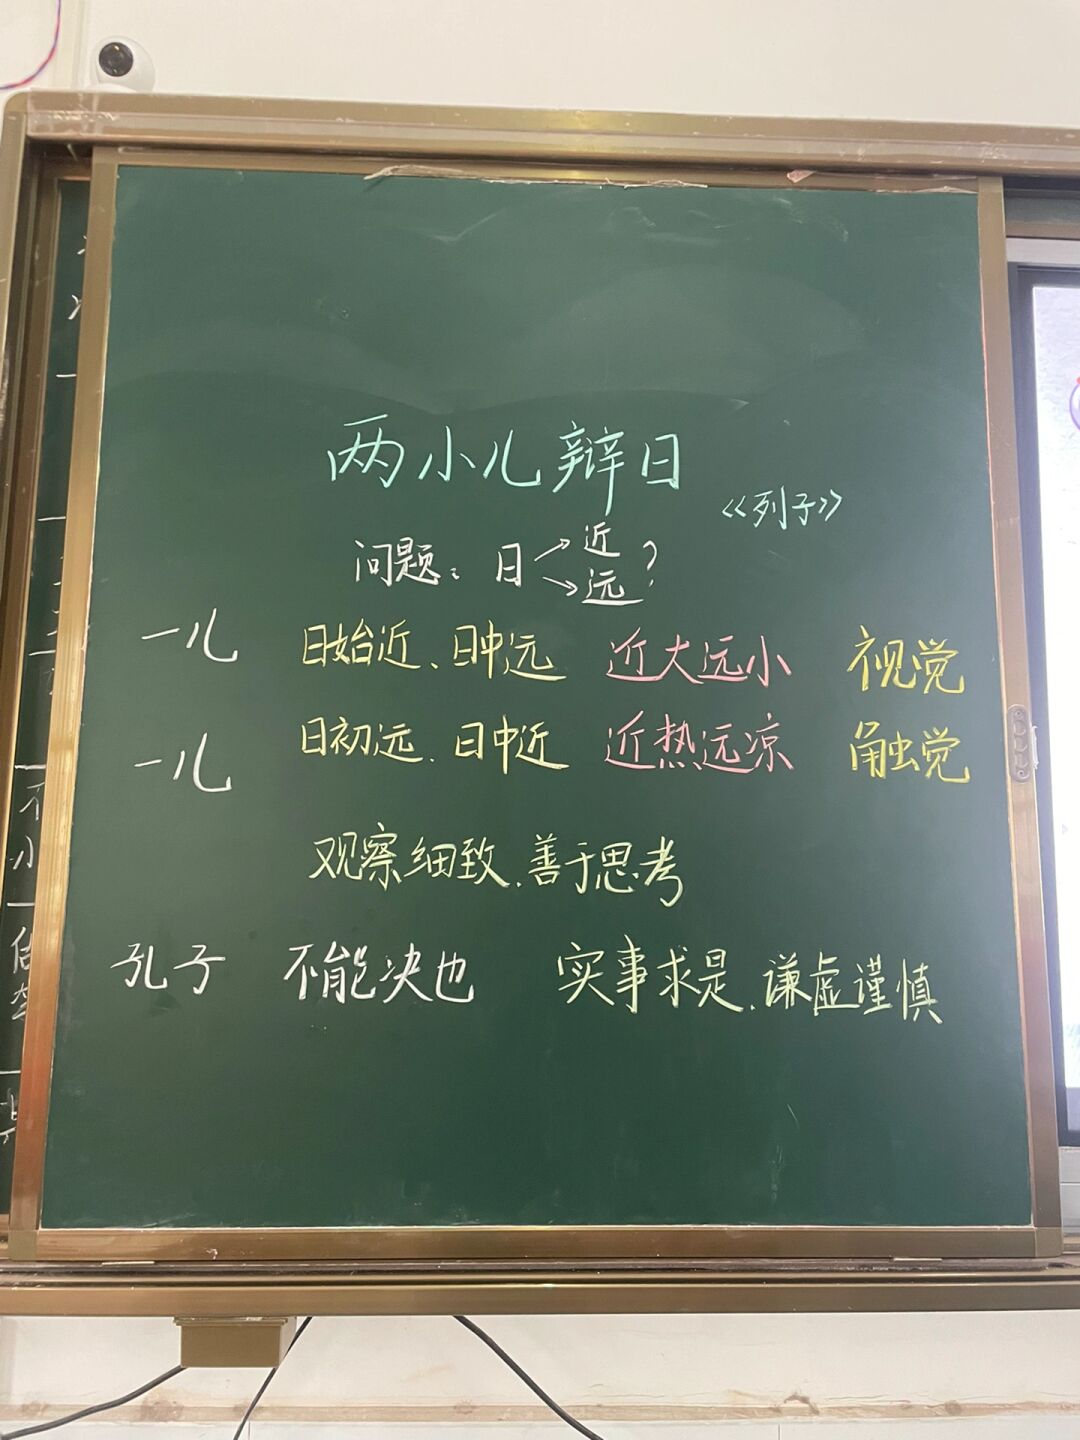 两小儿辩日
《列子》
问题：日→近→远？
一儿 日始近、日中远 近大远小 视觉
一儿 日初远、日中近 近热远凉 触觉
观察细致、善于思考
孔子 不能决也 实事求是、谦虚谨慎